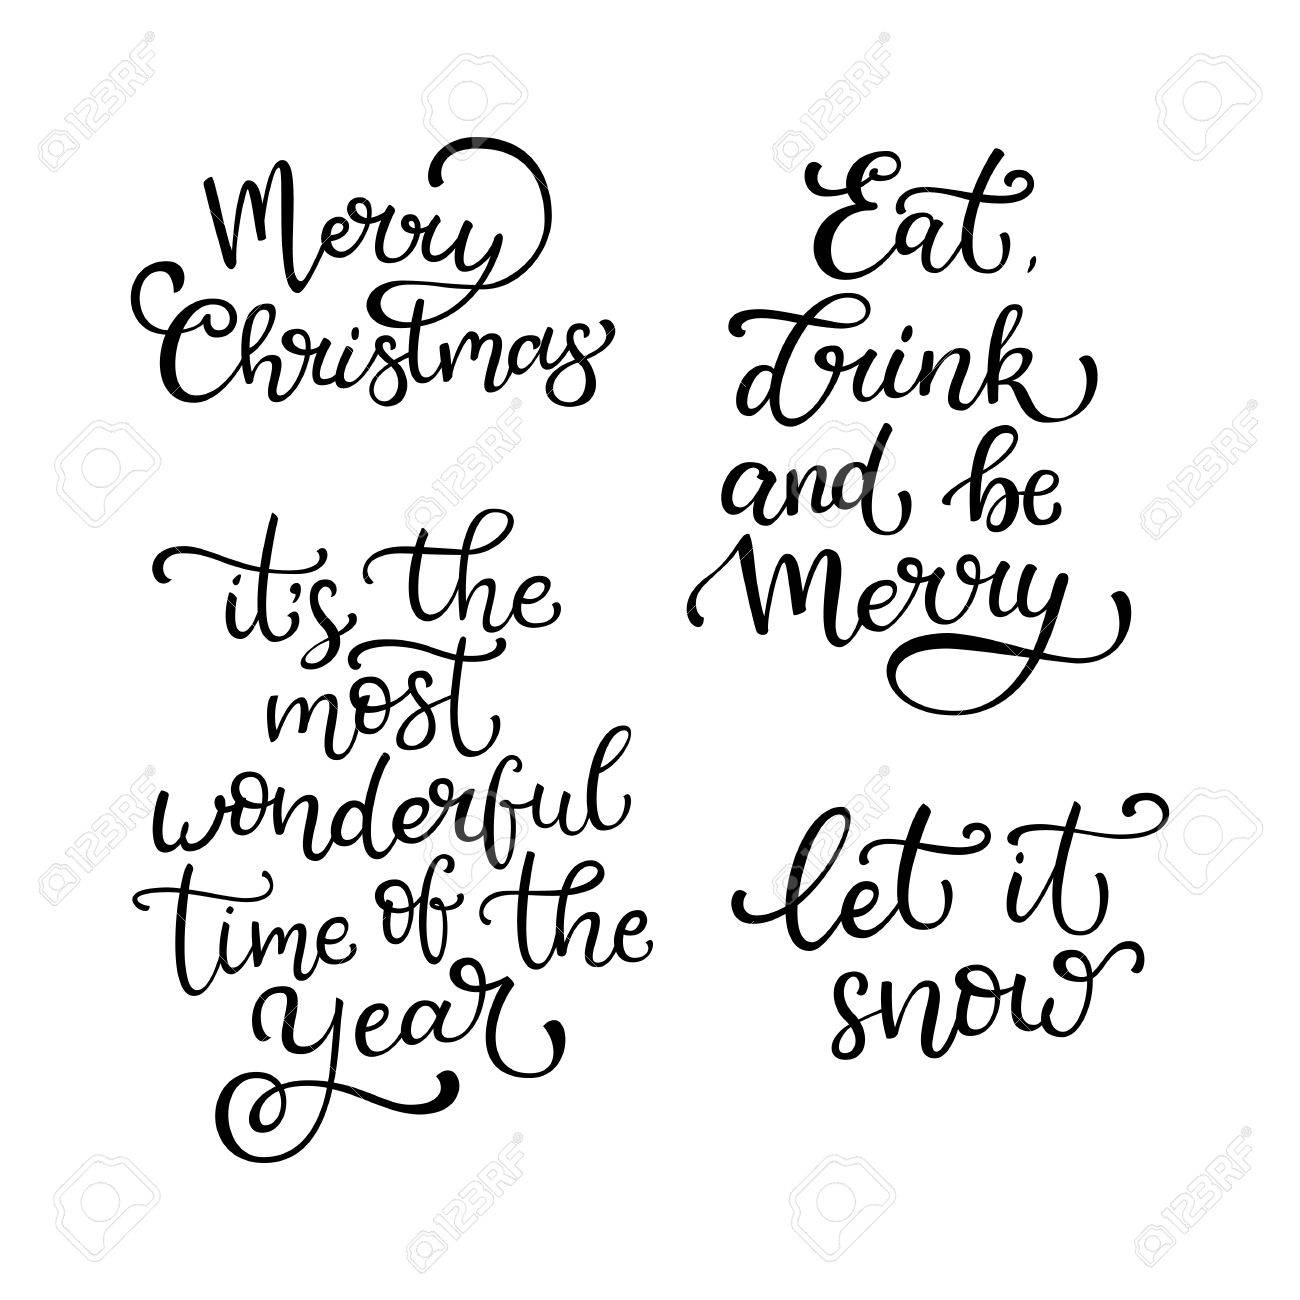 Merry
Christmas
Eat,
drink
and be
Merry
it's the
most
wonderful
time of the
Year
let it
snow
123RF